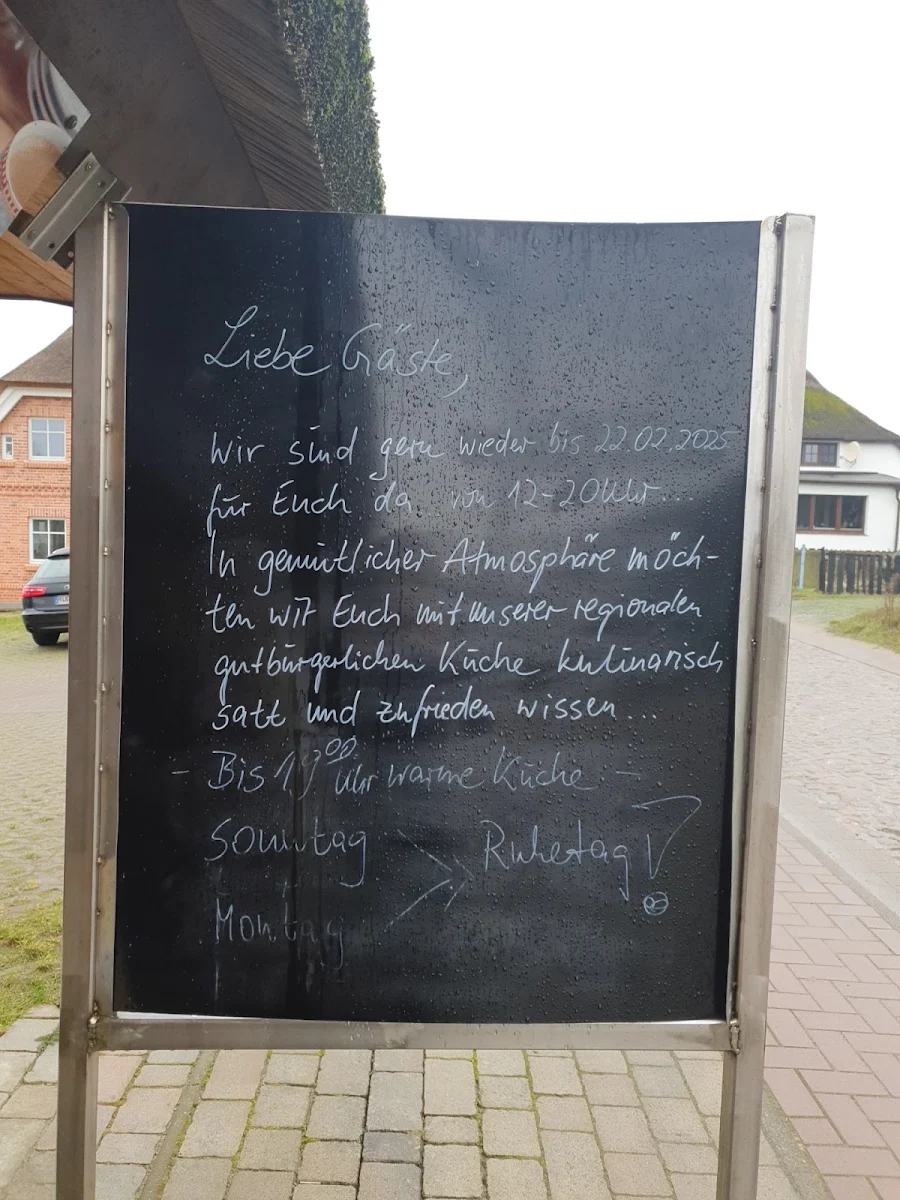 Liebe Gäste,
wir sind gern wieder bis 22.02.2025
für Euch da von 12-20Uhr....
In gemütlicher Atmosphäre möch-
ten wir Euch mit unserer regionalen
gutbürgerlichen Küche kulinarisch
satt und zufrieden wissen...
- Bis 19⁰⁰ Uhr warme Küche -
Sonntag > Ruhetag!
Montag